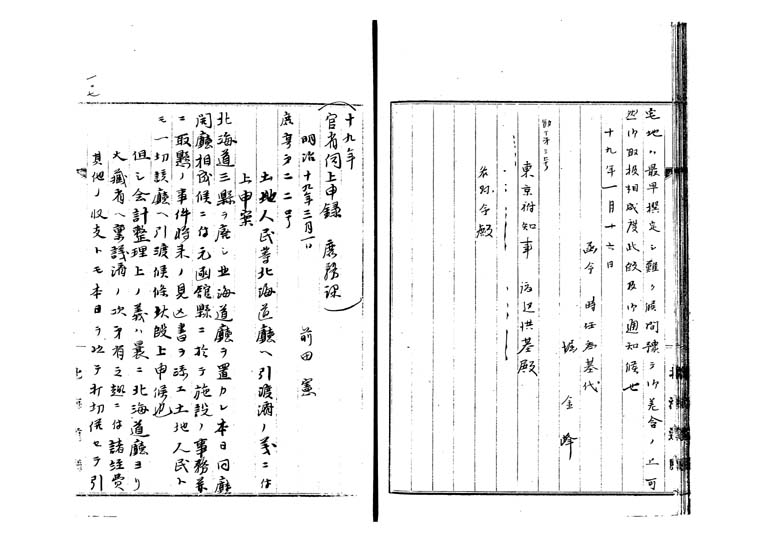 宅地ハ最早撰定シ難ク候間豫テ御差含ノ上可
然御取扱相成度此段及御通知候也
十九年一月十六日
函令 時任為基代
堀金峰
東京府知事 渡辺洪基殿
各縣令殿
十九年
官省伺上申録 庶務課
明治十九年三月一日
前田憲
庶第二二号
土地人民等北海道廳ヘ引渡済ノ義ニ付
上申案
北海道三縣ヲ廃シ北海道廳ヲ置カレ本日同廳
開廳相成候ニ付元函館縣ニ於テ施設ノ事務並
ニ取懸ノ事件将来ノ見込書ヲ添エ土地人民ト
モ一切該廳ヘ引渡候條此段上申候也
但シ会計整理上ノ義ハ曩ニ北海道廳ヨリ
大藏省ヘ稟議済ノ次第有之趣ニ付諸経費
其他ノ収支トモ本日ヲ以テ打切候セテ引